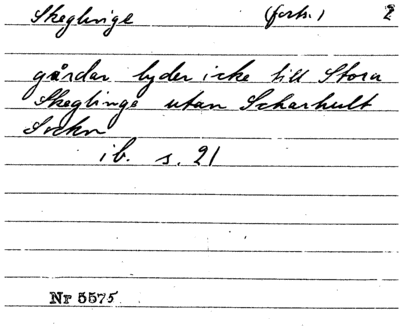 Skeglinge (forts.) 2
gårdar lyder icke till Stora
Skeglinge utan Scharhult
Sockn
ib. s. 21
Nr 5575